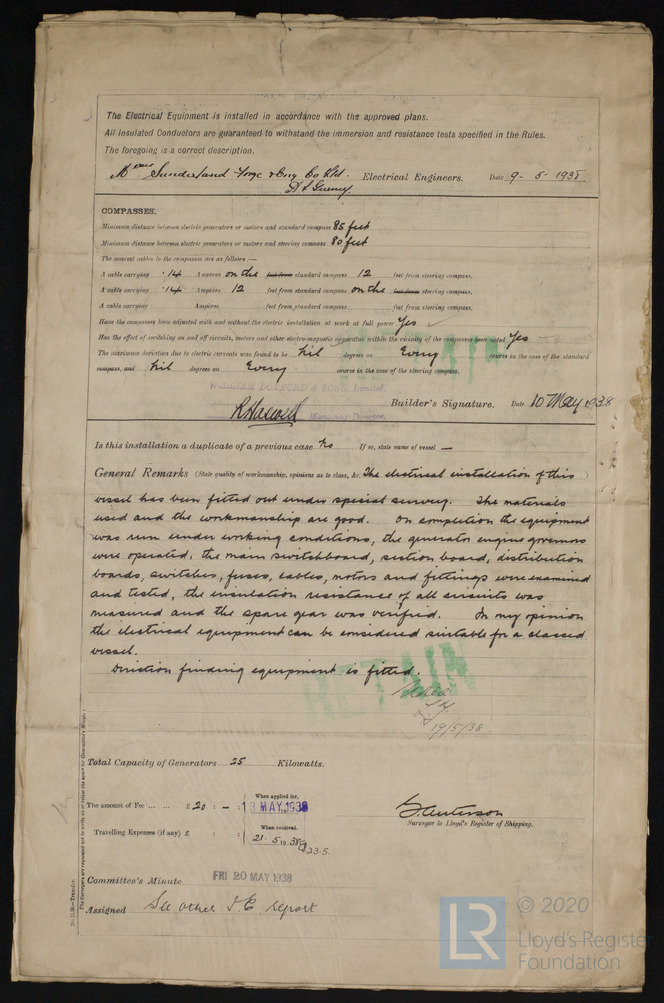 The Electrical Equipment is installed in accordance with the approved plans.
All Insulated Conductors are guaranteed to withstand the immersion and resistance tests specified in the Rules.
The foregoing is a correct description.
Sunderland Forge & Eng Co Ltd. Electrical Engineers. Date 9-5-1938
COMPASSES.
Minimum distance between electric generators or motors and standard compass 85 feet
Minimum distance between electric generators or motors and steering compass 80 feet
The nearest cables to the compasses are as follows:—
A cable carrying .14 Ampères on the feet from standard compass 12 feet from steering compass.
A cable carrying .14 Ampères 12 feet from standard compass on the feet from steering compass.
A cable carrying Ampères feet from standard compass feet from steering compass.
Have the compasses been adjusted with and without the electric installation at work at full power Yes
Has the effect of switching on and off circuits, motors and other electro-magnetic apparatus within the vicinity of the compasses been noted Yes
The maximum deviation due to electric currents was found to be Nil degrees on Every course in the case of the standard
compass, and Nil degrees on Every course in the case of the steering compass.
WILLIAM DOXFORD & SONS, Limited.
Managing Director. Builder's Signature. Date 10 May 1938
Is this installation a duplicate of a previous case No If so, state name of vessel —
General Remarks (State quality of workmanship, opinions as to class, &c. The electrical installation of this )
vessel has been fitted out under special survey. The materials
used and the workmanship are good. On completion the equipment
was run under working conditions, the generator engine governors
were operated, the main switchboard, section board, distribution
boards, switches, fuses, cables, motors and fittings were examined
and tested, the insulation resistance of all circuits was
measured and the spare gear was verified. In my opinion
the electrical equipment can be considered suitable for a classed
vessel.
Direction finding equipment is fitted.
RETAIN
Noted
19/5/38
Total Capacity of Generators 25 Kilowatts.
The amount of Fee ... ... £ 20 : – : When applied for, 13 MAY 1938
Travelling Expenses (if any) £ : : When received, 21.5.19 38 23.5.
Surveyor to Lloyd's Register of Shipping.
Committee's Minute FRI 20 MAY 1938
Assigned See other F.E. report
The Surveyors are requested not to write on or below the space for Committee's Minute.
© 2020
LR
Lloyd's Register
Foundation